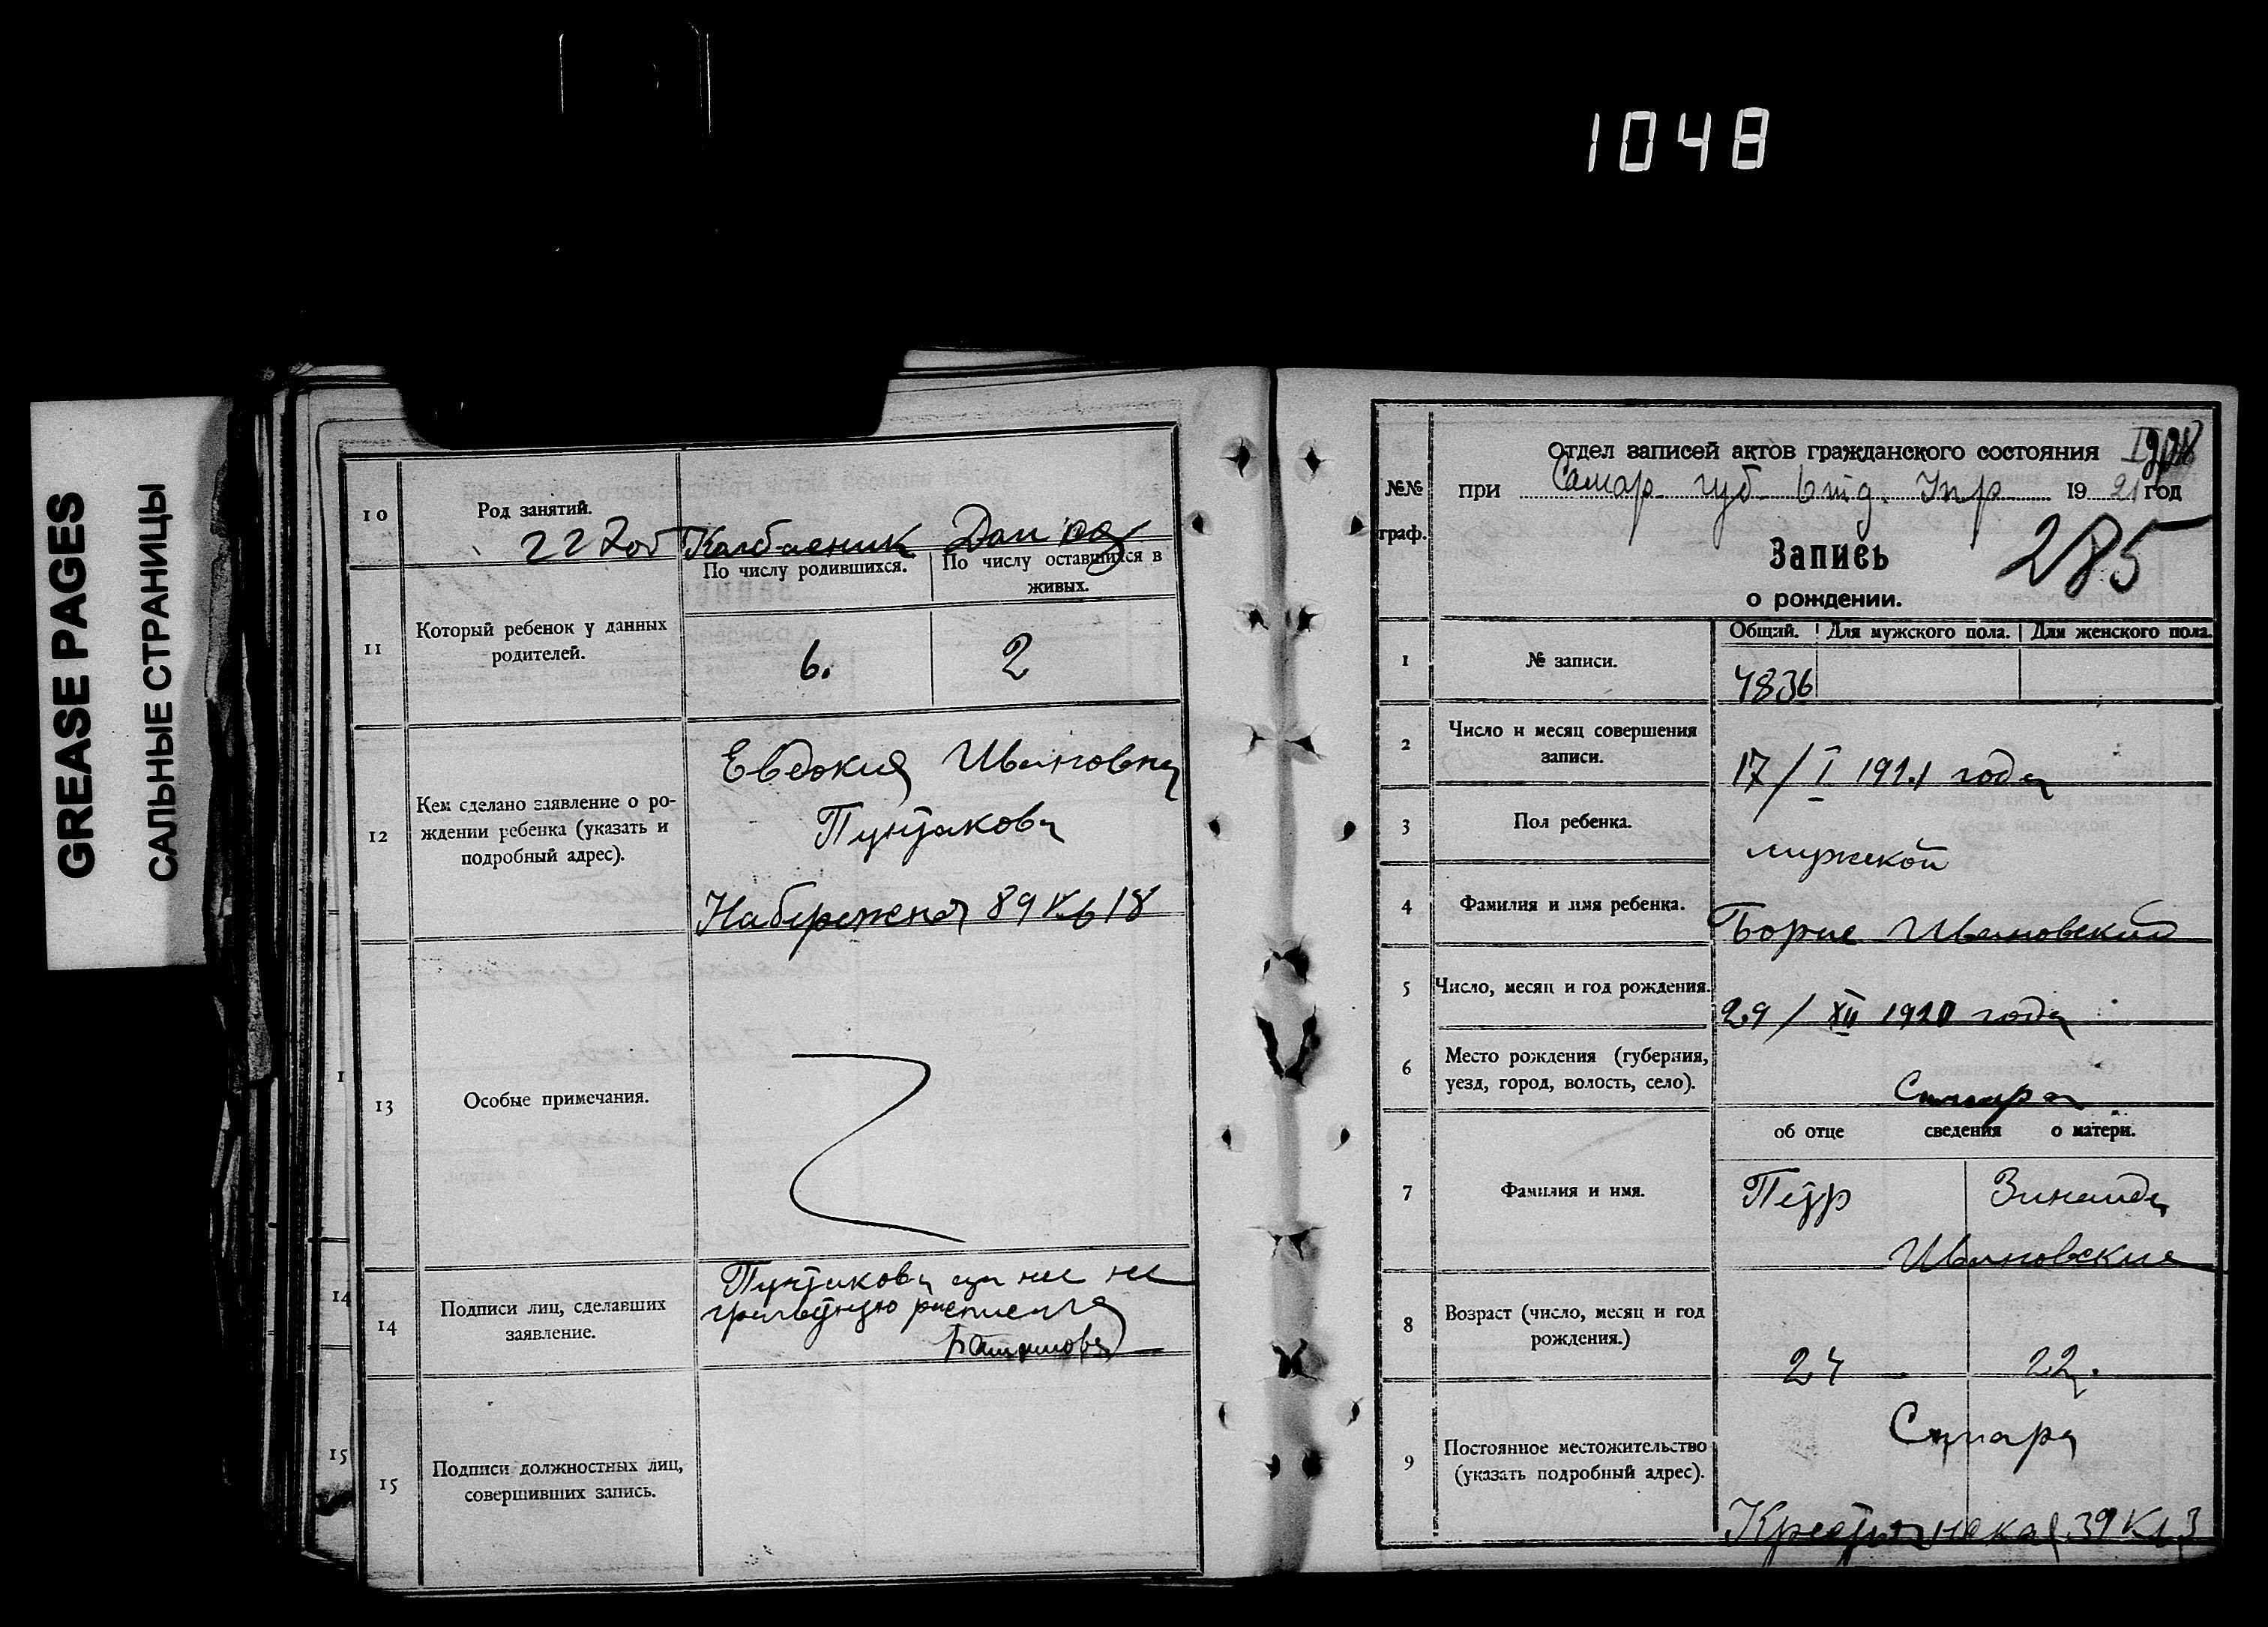 1048
GREASE PAGES
САЛЬНЫЕ СТРАНИЦЫ
10
Род занятий.
Колбасник
По числу родившихся.
По числу оставшихся в живых.
11
Который ребенок у данных
родителей.
6.
2
12
Кем сделано заявление о ро-
ждении ребенка (указать и
подробный адрес).
Евдокия Ивановна
Пунтакова
Набережная 89 кв 18
13
Особые примечания.
14
Подписи лиц, сделавших
заявление.
Пунтакова за нее не
грамотную
15
Подписи должностных лиц,
совершивших запись.
1
14
15
№№
граф.
Отдел записей актов гражданского состояния
при Самар губ отд. Упр 1921 год
285
Запись
о рождении.
1
№ записи.
Общий.
Для мужского пола.
Для женского пола.
4836
2
Число и месяц совершения
записи.
17/I 1921 года
3
Пол ребенка.
мужской
4
Фамилия и имя ребенка.
Борис Ивановский
5
Число, месяц и год рождения.
29/XII 1920 года
6
Место рождения (губерния,
уезд, город, волость, село).
Самара
об отце сведения о матери.
7
Фамилия и имя.
Петр
Зинаида
Ивановские
8
Возраст (число, месяц и год
рождения.)
24
22.
9
Постоянное местожительство
(указать подробный адрес).
Самара
Крестьянская 39 кв 3